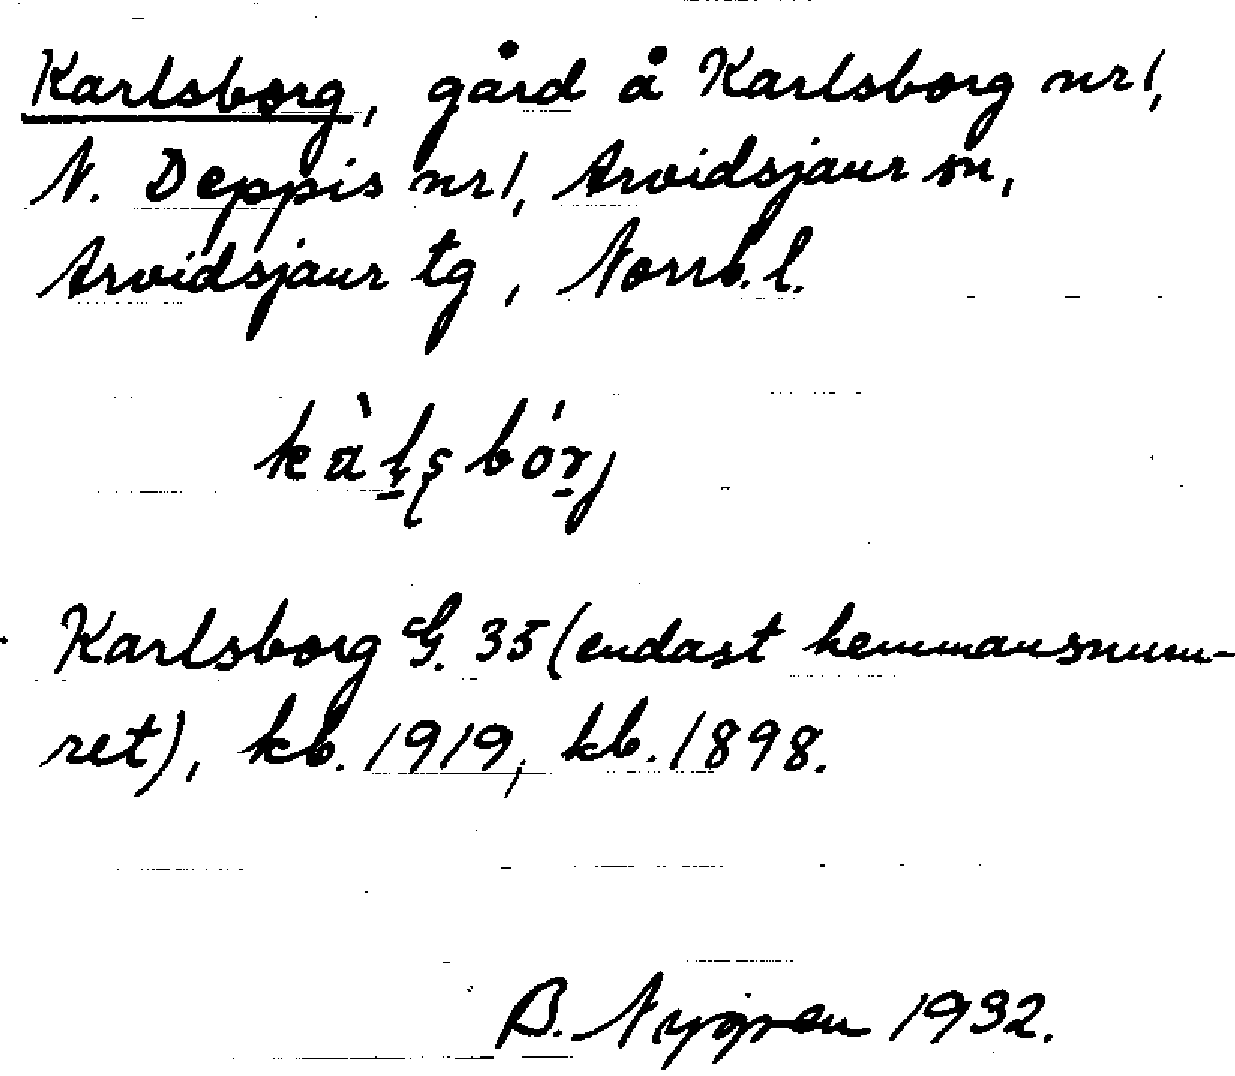 Karlsborg, gård å Karlsborg nr 1,
N. Deppis nr 1, Arvidsjaur sn,
Arvidsjaur tg, Norrb. l.
kàḷṣbórj
Karlsborg G. 35 (endast hemmansnumm-
ret), kb. 1919, kb. 1898.
B. Nygren 1932.